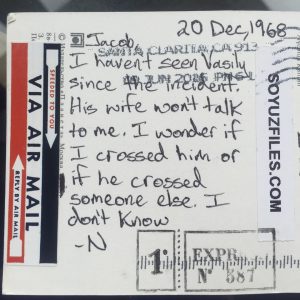 20 Dec, 1968
Jacob,
SANTA CLARITA CA 913
I haven't seen Vasily
since the incident.
His wife won't talk
to me. I wonder if
I crossed him or
if he crossed
someone else. I
don't know
-N
SPEEDED TO YOU
VIA AIR MAIL
REPLY BY AIR MAIL
SOYUZFILES.COM
1st
EXPR.
Nº 587